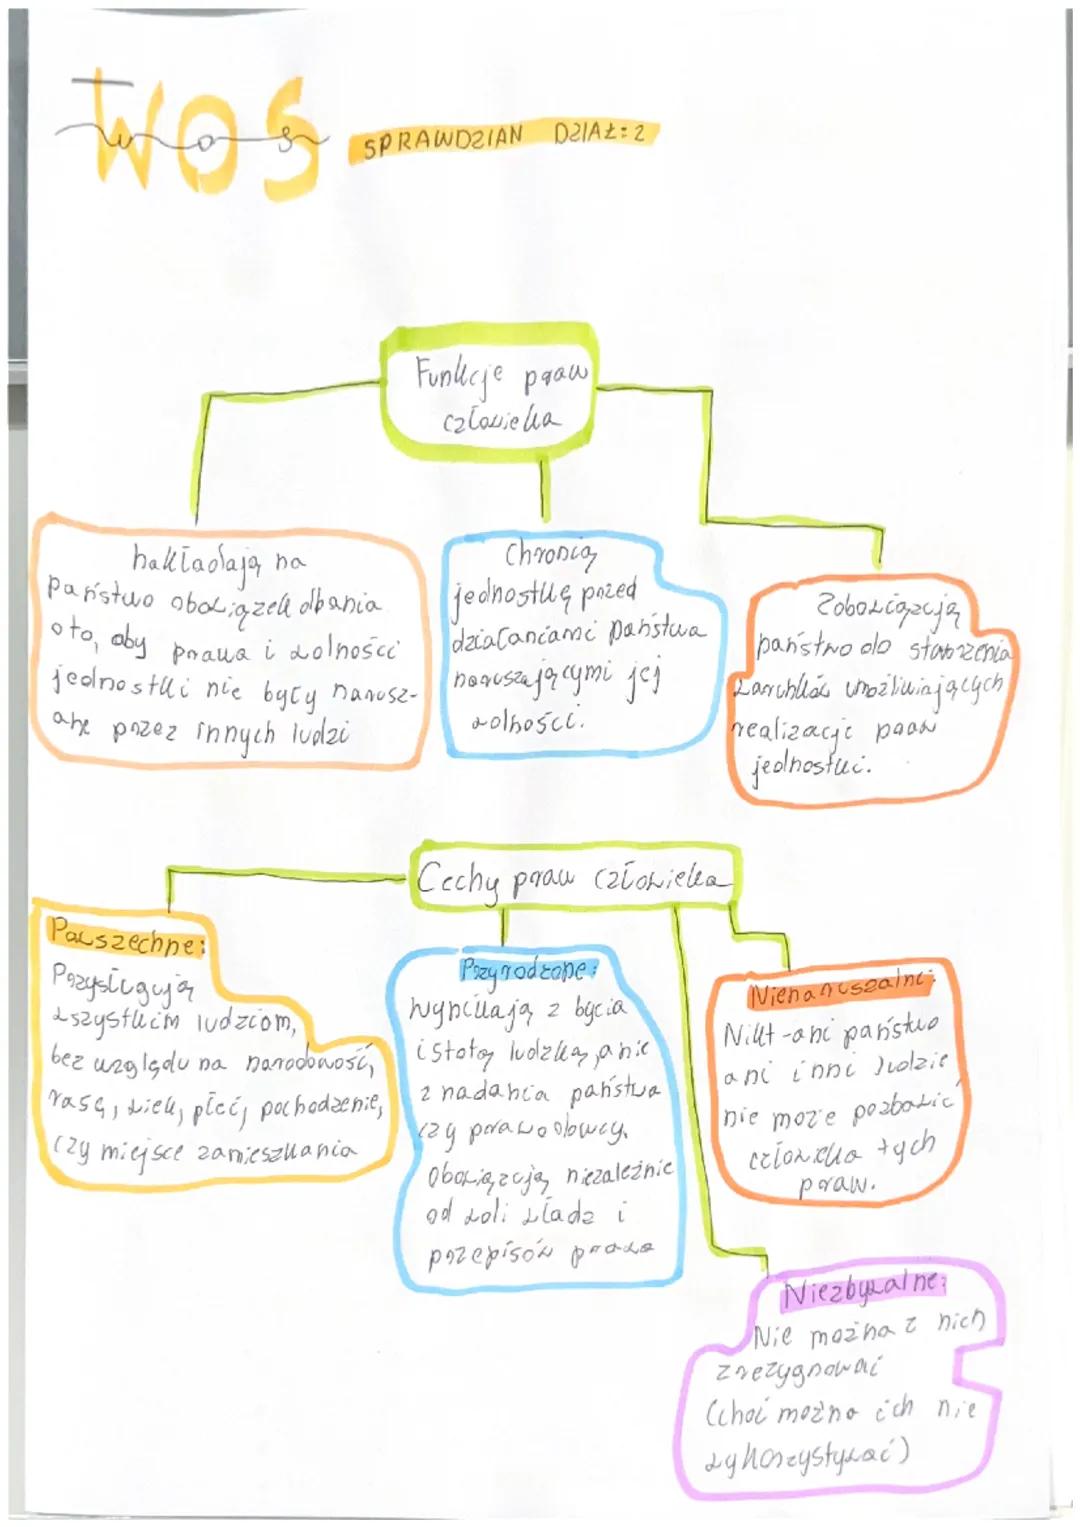 WOS
wos
SPRAWDZIAN DZIAŁ: 2
Funkcje praw
człowieka
nakładają na
państwo obowiązek dbania
o to, aby prawa i wolności
jednostki nie były narusz-
ane przez innych ludzi
Chronią
jednostkę przed
działaniami państwa
naruszającymi jej
wolności.
Zobowiązują
państwo do stworzenia
warunków umożliwiających
realizację praw
jednostki.
Cechy praw człowieka
Powszechne:
Przysługują
wszystkim ludziom,
bez względu na narodowość,
rasę, wiek, płeć, pochodzenie,
czy miejsce zamieszkania
Przyrodzone:
wynikają z bycia
istotą ludzką, a nie
z nadania państwa
czy prawodawcy.
Obowiązują niezależnie
od woli władz i
przepisów prawa
Nienaruszalne:
Nikt - ani państwo
ani inni ludzie
nie może pozbawić
człowieka tych
praw.
Niezbywalne:
Nie można z nich
zrezygnować
(choć można ich nie
wykorzystywać)